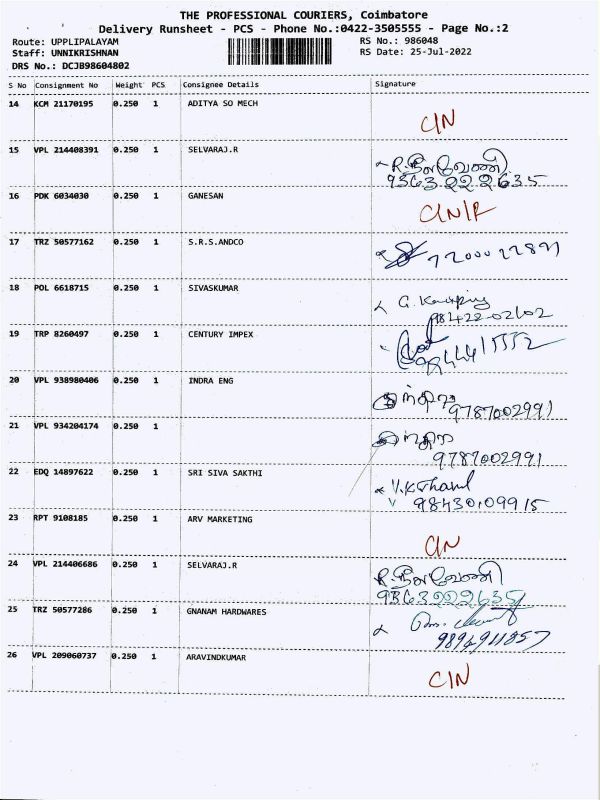 THE PROFESSIONAL COURIERS, Coimbatore
Delivery Runsheet - PCS - Phone No.:0422-3505555 - Page No.:2
Route: UPPLIPALAYAM RS No.: 986048
Staff: UNNIKRISHNAN RS Date: 25-Jul-2022
DRS No.: DCJB98604802
S No Consignment No Weight PCS Consignee Details Signature
14 KCM 21170195 0.250 1 ADITYA SO MECH
C/N
15 VPL 214408391 0.250 1 SELVARAJ.R
9363222635
16 PDK 6034030 0.250 1 GANESAN
17 TRZ 50577162 0.250 1 S.R.S.ANDCO
18 POL 6618715 0.250 1 SIVASKUMAR
19 TRP 8260497 0.250 1 CENTURY IMPEX
20 VPL 938980406 0.250 1 INDRA ENG
9787002991
21 VPL 934204174 0.250 1
9787002991
22 EDQ 14897622 0.250 1 SRI SIVA SAKTHI
98430109915
23 RPT 9108185 0.250 1 ARV MARKETING
C/N
24 VPL 214406686 0.250 1 SELVARAJ.R
9363222635
25 TRZ 50577286 0.250 1 GNANAM HARDWARES
9894911857
26 VPL 209060737 0.250 1 ARAVINDKUMAR
C/N